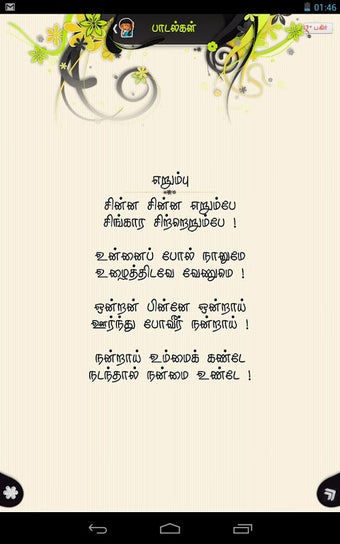 01:46
பாடல்கள்
பகிர்
எறும்பு
சின்ன சின்ன எறும்பே
சிங்கார சிற்றெறும்பே !
உன்னைப் போல் நானுமே
உழைத்திடவே வேணுமே !
ஒன்றன் பின்னே ஒன்றாய்
ஊர்ந்து போவீர் நன்றாய் !
நன்றாய் உம்மைக் கண்டே
நடந்தால் நன்மை உண்டே !